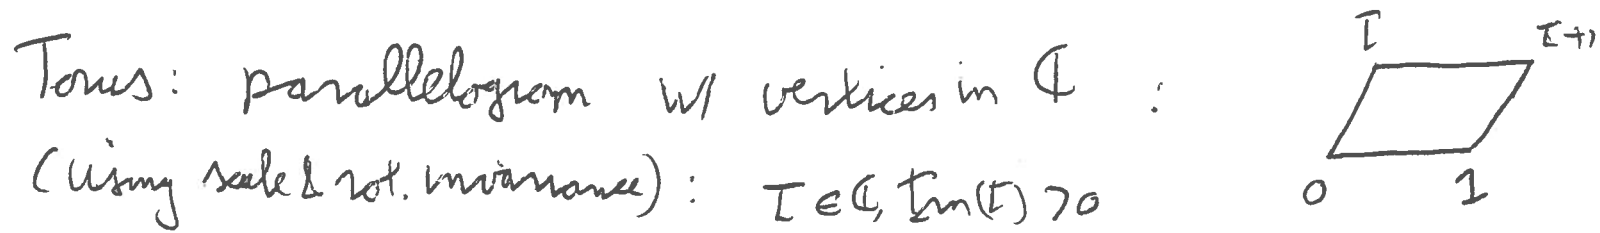 Torus: parallelogram w/ vertices in ℂ :
(using scale & rot. invariance): τ ∈ ℂ, Im(τ) > 0
τ
τ+1
0
1